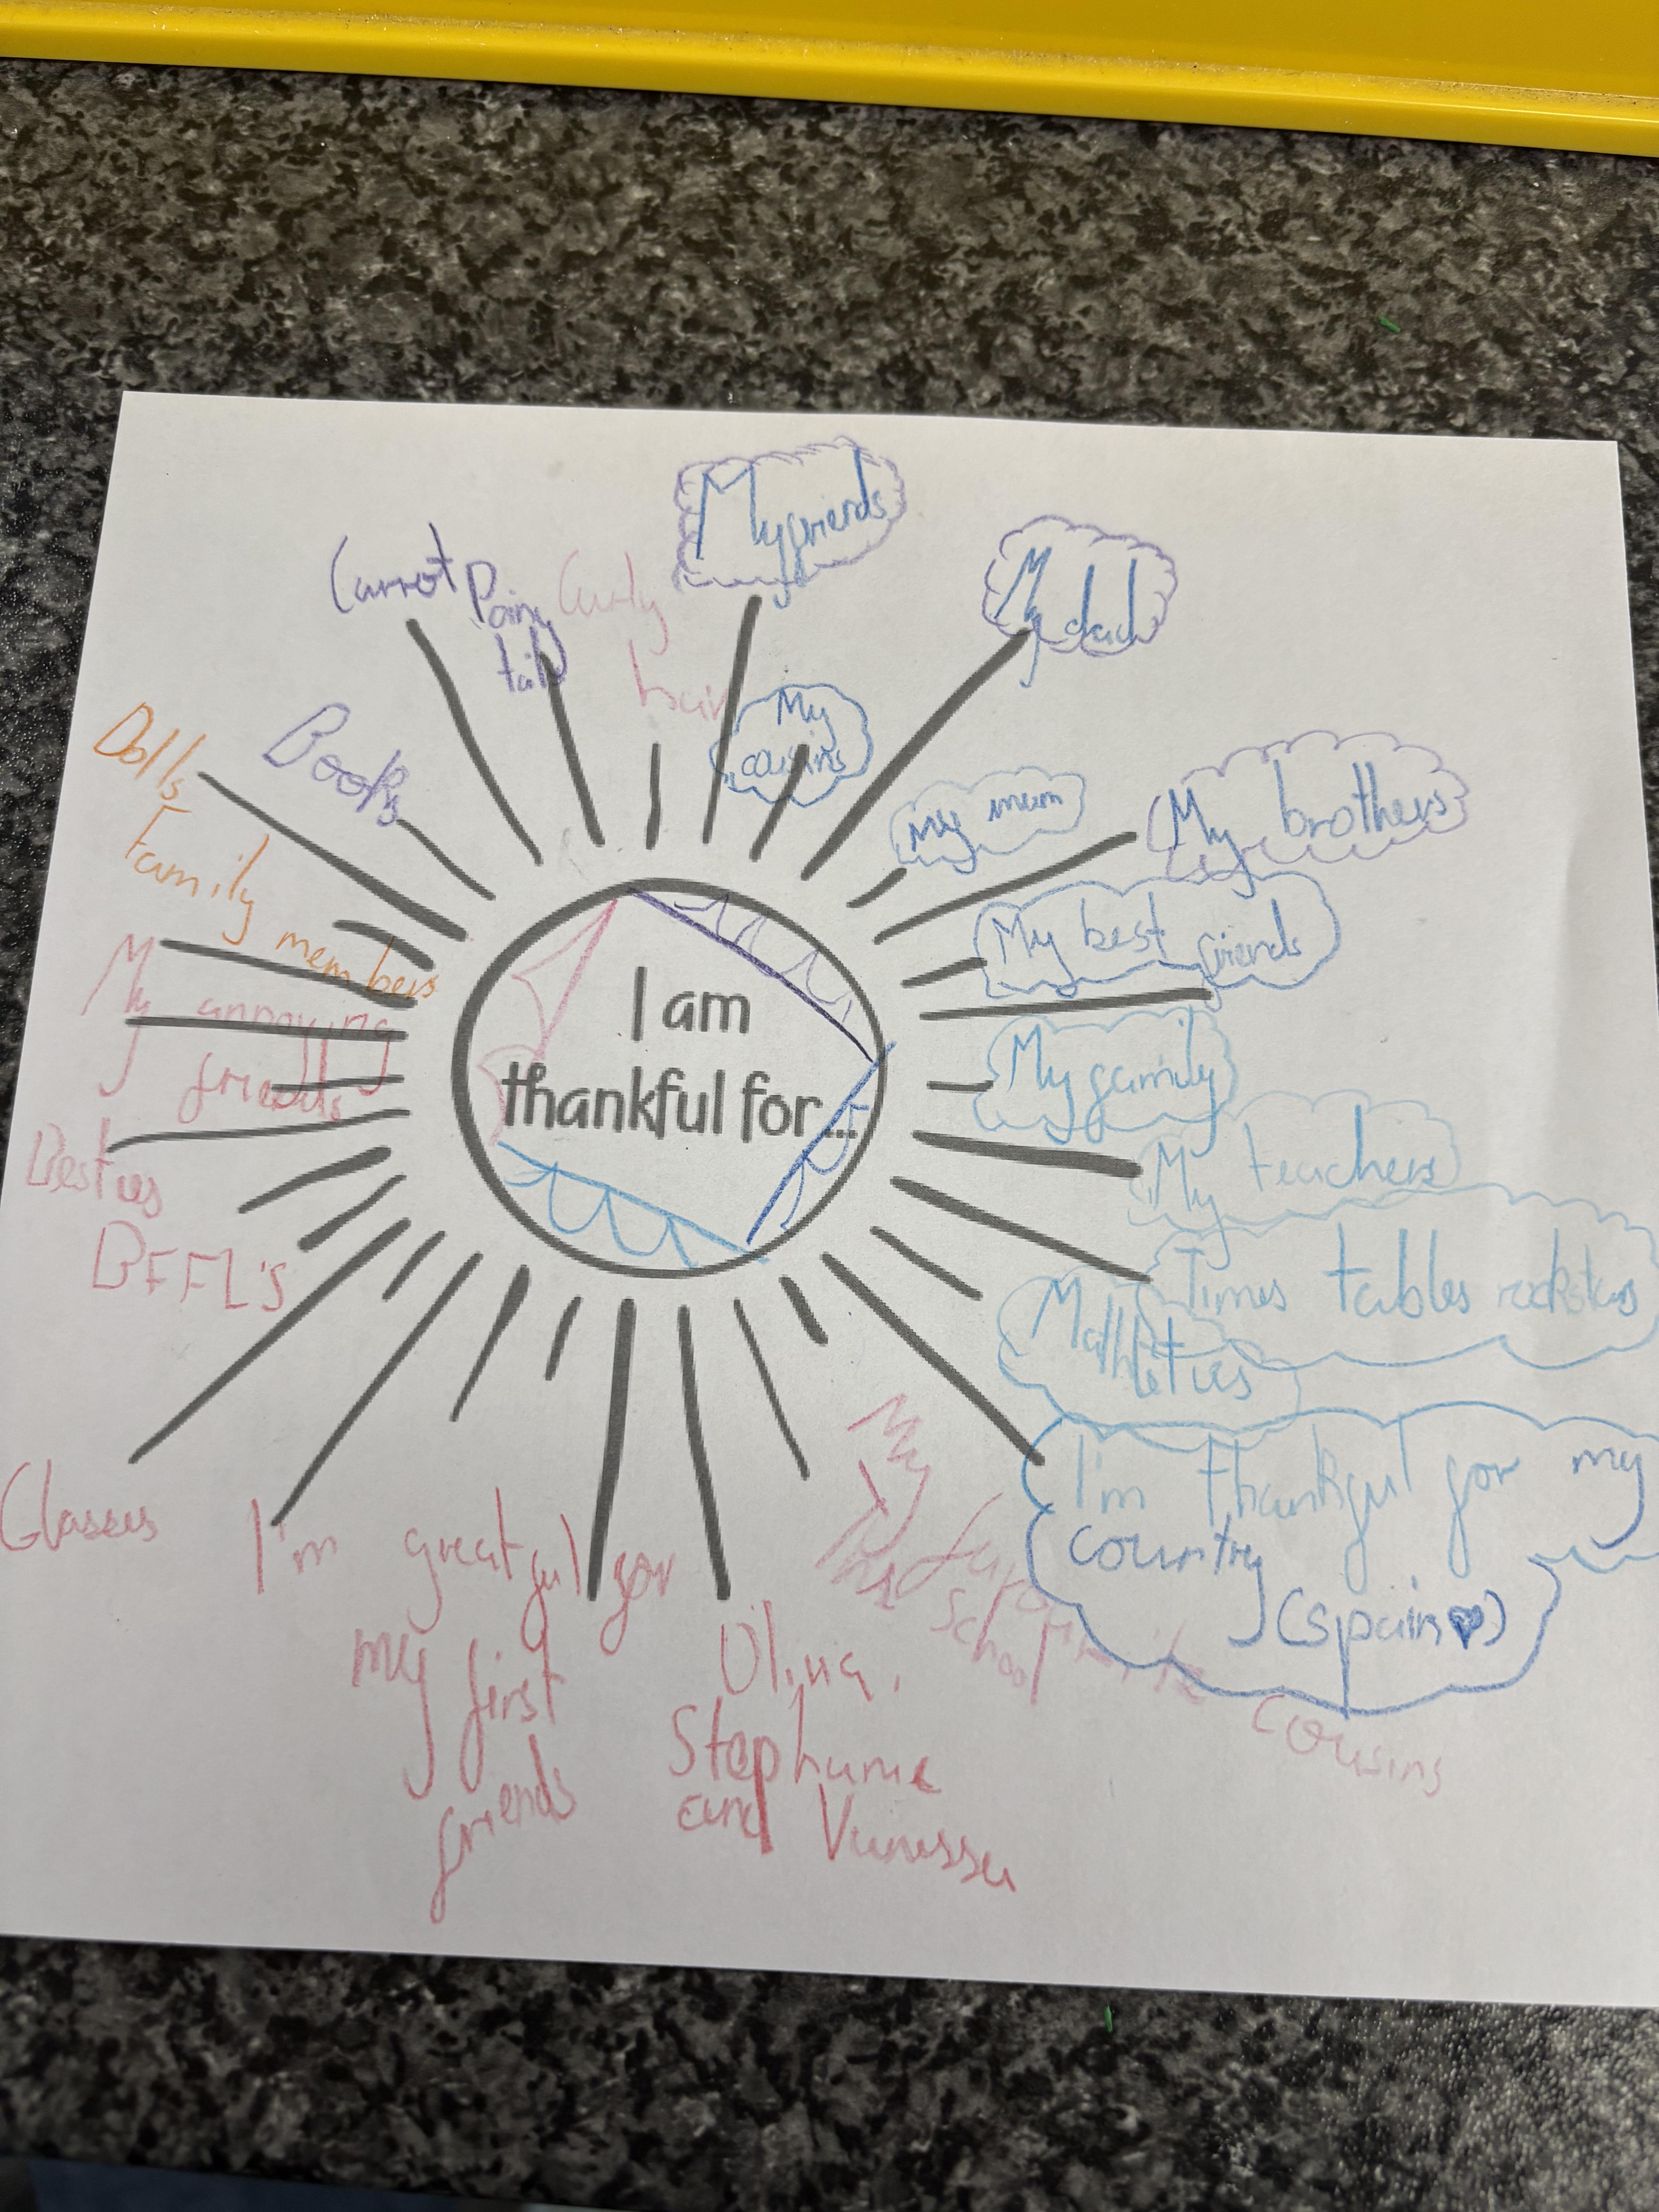 My friends
My dad
Carrot
Pony
tail
Curly
hair
My
cousins
Dolls
Books
my mum
My brothers
Family
members
My best friends
I am
thankful for...
My annoying
friends
My family
My teachers
Besties
BFFL'S
Times tables rockstars
Mathletics
I'm thankful for my
country
(Spain♥)
Glasses
I'm greatful for
my first
friends
Olivia,
Stephanie
and Vanessa
My
school
favourite
cousins